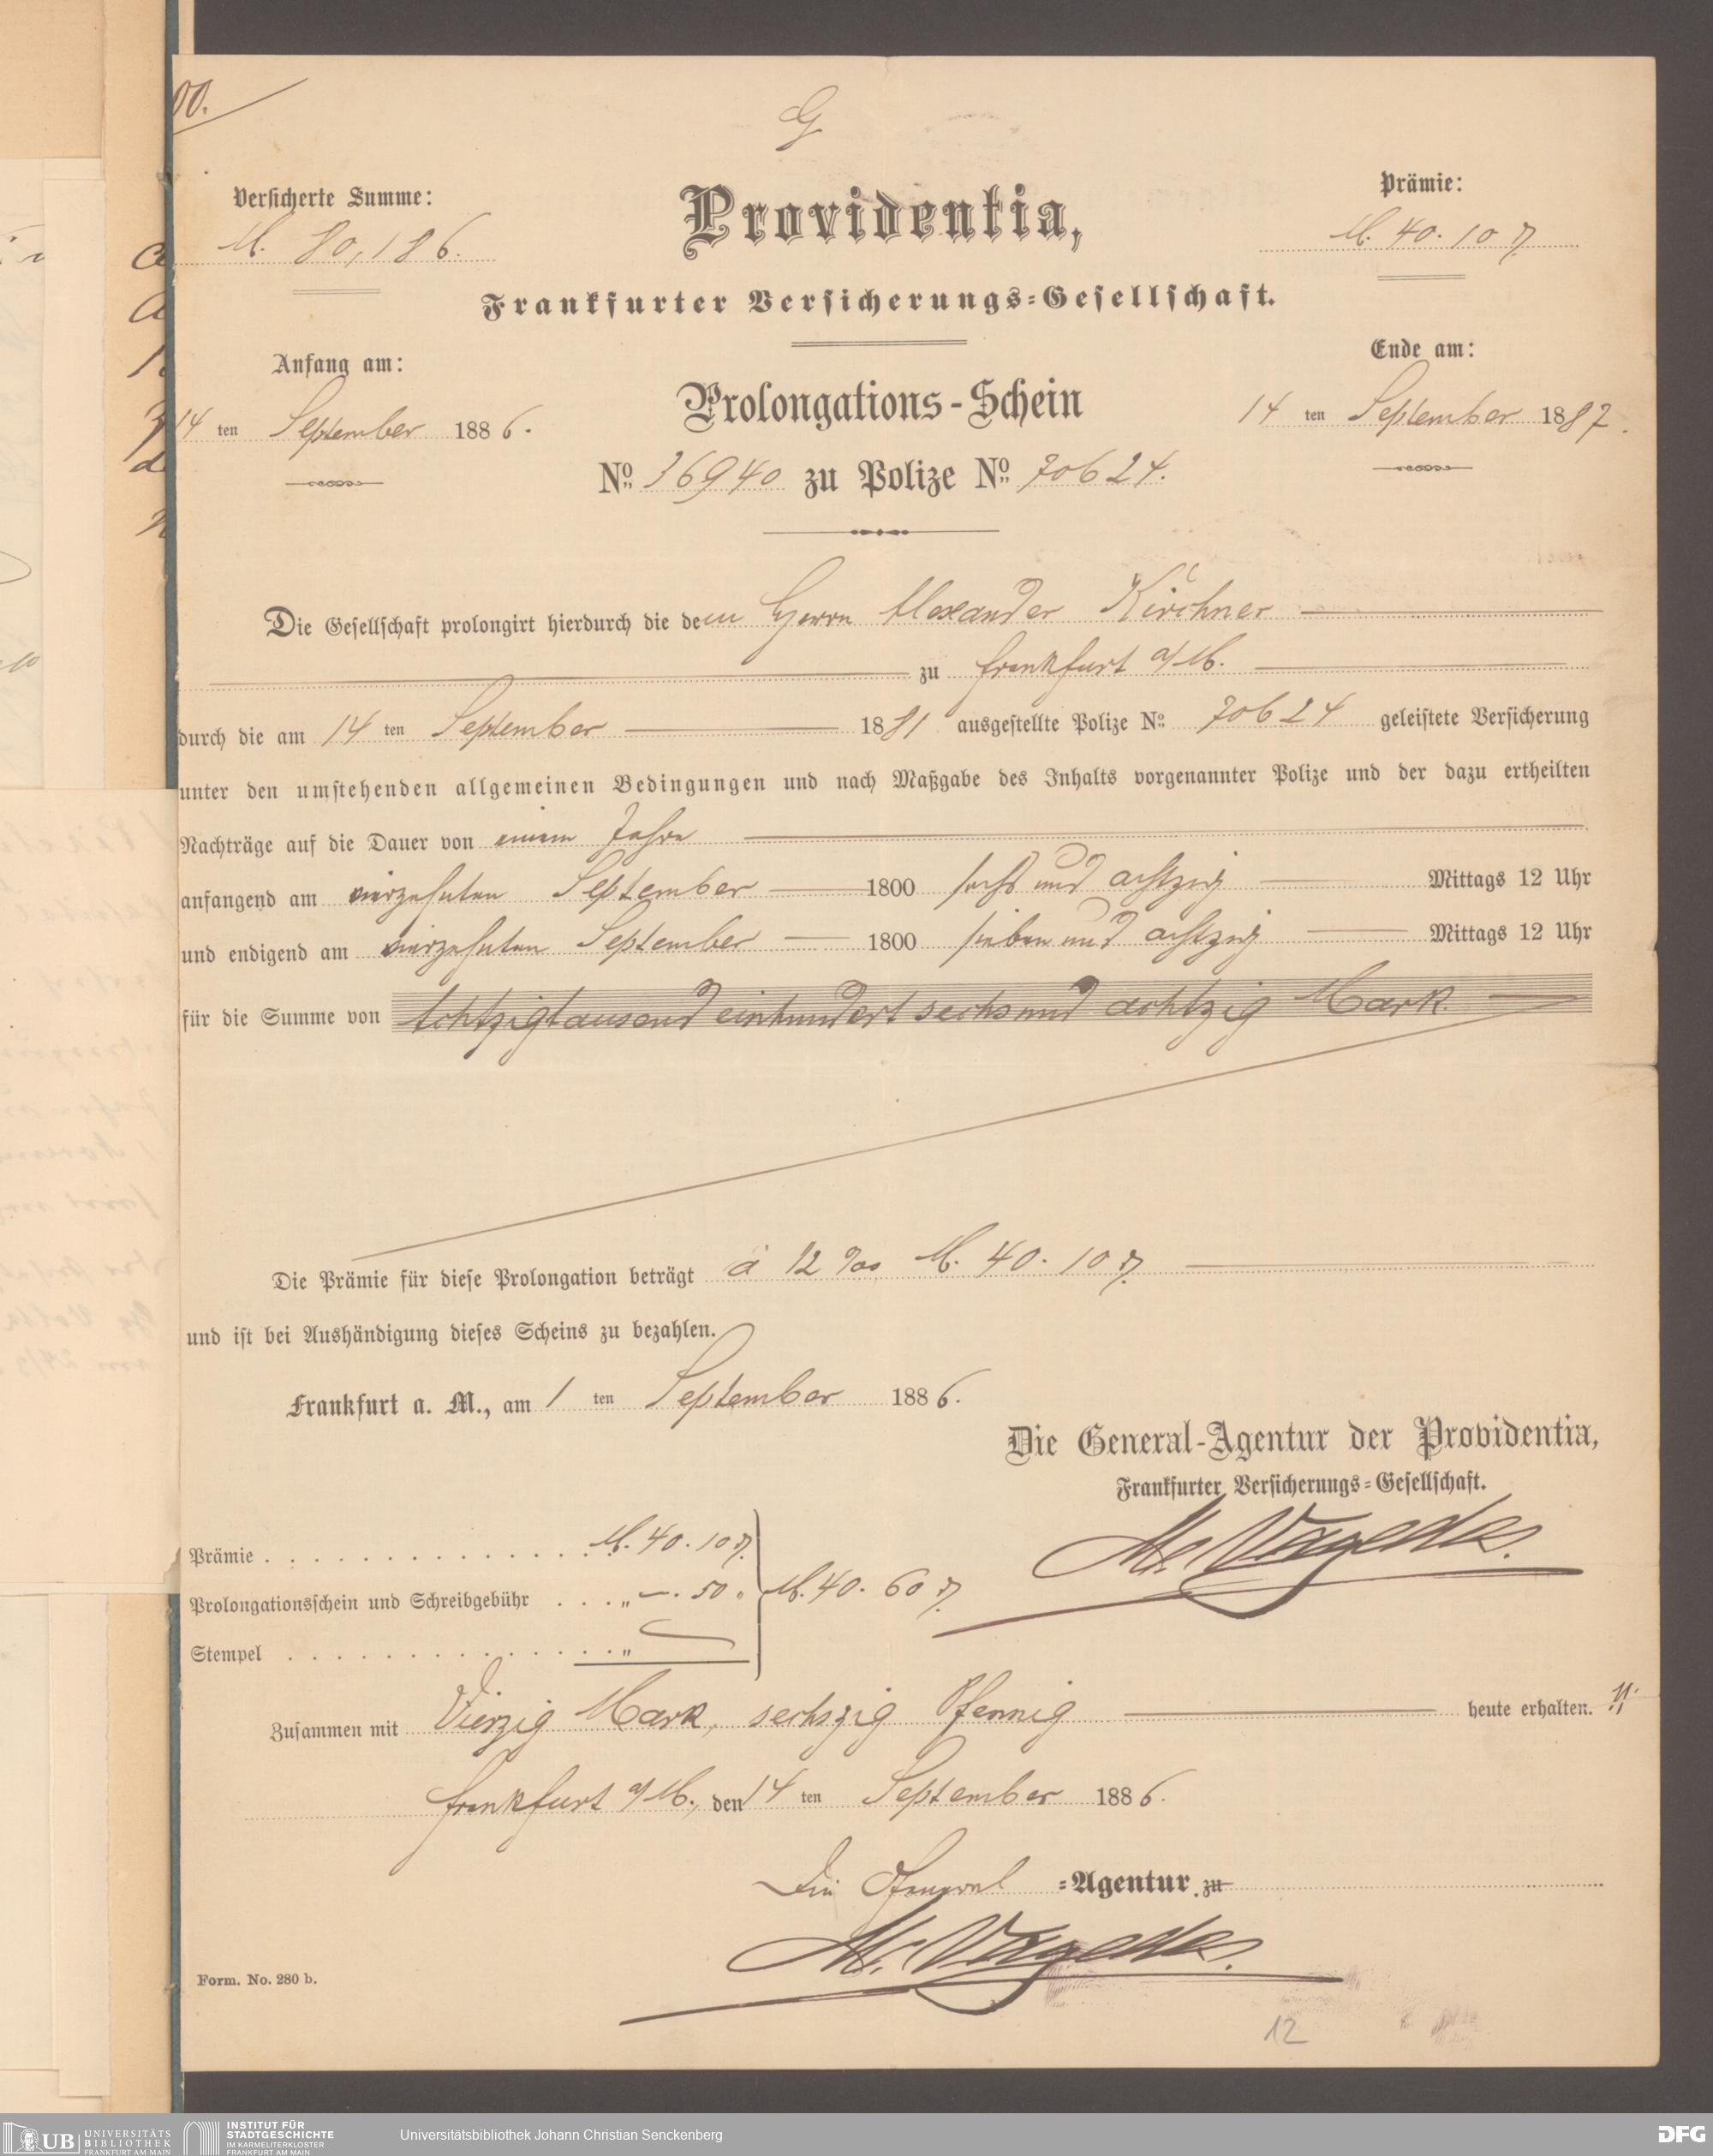 00.
G
Versicherte Summe:
M. 80,186.
Providentia,
Prämie:
M. 40. 10 ₰
Frankfurter Versicherungs=Gesellschaft.
Anfang am:
14 ten September 1886.
Prolongations-Schein
Ende am:
14 ten September 1887.
No. 36940 zu Polize No. 70624.
Die Gesellschaft prolongirt hierdurch die dem Herrn Alexander Kirchner
zu Frankfurt a/M.
durch die am 14 ten September 1881 ausgestellte Polize No. 70624 geleistete Versicherung
unter den umstehenden allgemeinen Bedingungen und nach Maßgabe des Inhalts vorgenannter Polize und der dazu ertheilten
Nachträge auf die Dauer von einem Jahre
anfangend am vierzehnten September 1800 sechs und achtzig Mittags 12 Uhr
und endigend am vierzehnten September 1800 sieben und achtzig Mittags 12 Uhr
für die Summe von Achtzigtausend einhundert sechs und achtzig Mark.
Die Prämie für diese Prolongation beträgt à 1/2 ‰ M. 40. 10 ₰
und ist bei Aushändigung dieses Scheins zu bezahlen.
Frankfurt a. M., am 1 ten September 1886.
Die General-Agentur der Providentia,
Frankfurter Versicherungs=Gesellschaft.
Prämie . . . . . . . . . . . . . . M. 40. 10 ₰
Prolongationsschein und Schreibgebühr . . . „ —. 50 „ M. 40. 60 ₰
Stempel . . . . . . . . . . . . . . „
Zusammen mit Vierzig Mark, sechszig Pfennig heute erhalten.
Frankfurt a/M., den 14 ten September 1886.
Die General =Agentur zu
Form. No. 280 b.
12
UB UNIVERSITÄTS
BIBLIOTHEK
FRANKFURT AM MAIN
INSTITUT FÜR
STADTGESCHICHTE
IM KARMELITERKLOSTER
FRANKFURT AM MAIN
Universitätsbibliothek Johann Christian Senckenberg
DFG